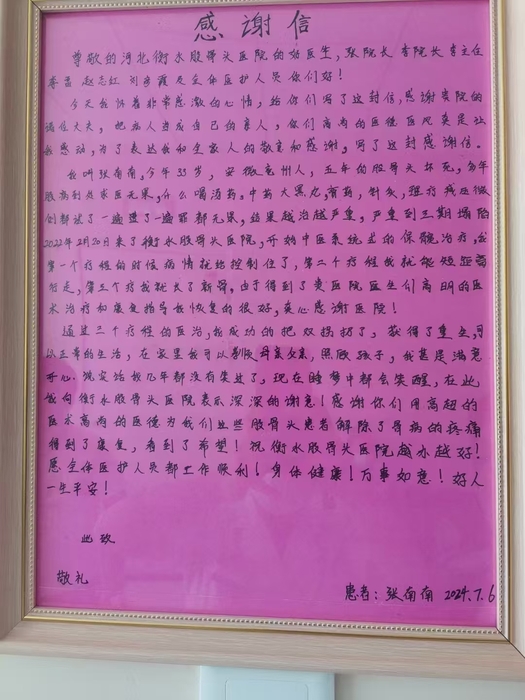 感谢信
尊敬的河北衡水股骨头医院的好医生,张院长 李院长 李主任
李孟 赵志红 刘彦霞及全体医护人员你们好!
今天我怀着非常感激的心情,给你们写了这封信,感谢贵院的
诸位大夫,把病人当成自己的亲人,你们高尚的医德医风真是让
我感动,为了表达我和全家人的敬意和感谢,写了这封感谢信。
我叫张南南,今年33岁,安徽亳州人,五年的股骨头坏死,多年
四处求医无果,什么喝汤药。中药大黑丸,膏药,针灸,理疗或是微
创都试了一遍遭了一遍罪都无果,结果越治越严重,严重到三期塌陷
2022年2月20日来了衡水股骨头医院,开始中医系统式的保髋治疗,我
第一个疗程的时候病情就给控制住了,第二个疗程我就能短距离
行走,第三个疗我就长了新骨。由于得到了贵医院医生们高明的医
术治疗和康复指导我恢复的很好,衷心感谢医院!
通过三个疗程的医治,我成功的把双拐扔了,获得了重生,可
以正常的生活,在家里我可以孝敬父母,照顾孩子,我甚是满意
开心。说实话我几年都没有笑过了,现在睡梦中都会笑醒,在此
我向衡水股骨头医院表示深深的谢意!感谢你们用高超的
医术高尚的医德为我们这些股骨头患者解除了骨病的疼痛
得到了康复,看到了希望!祝衡水股骨头医院越办越好!
愿全体医护人员都工作顺利!身体健康!万事如意!好人
一生平安!
此致
敬礼
患者:张南南 2024.7.6